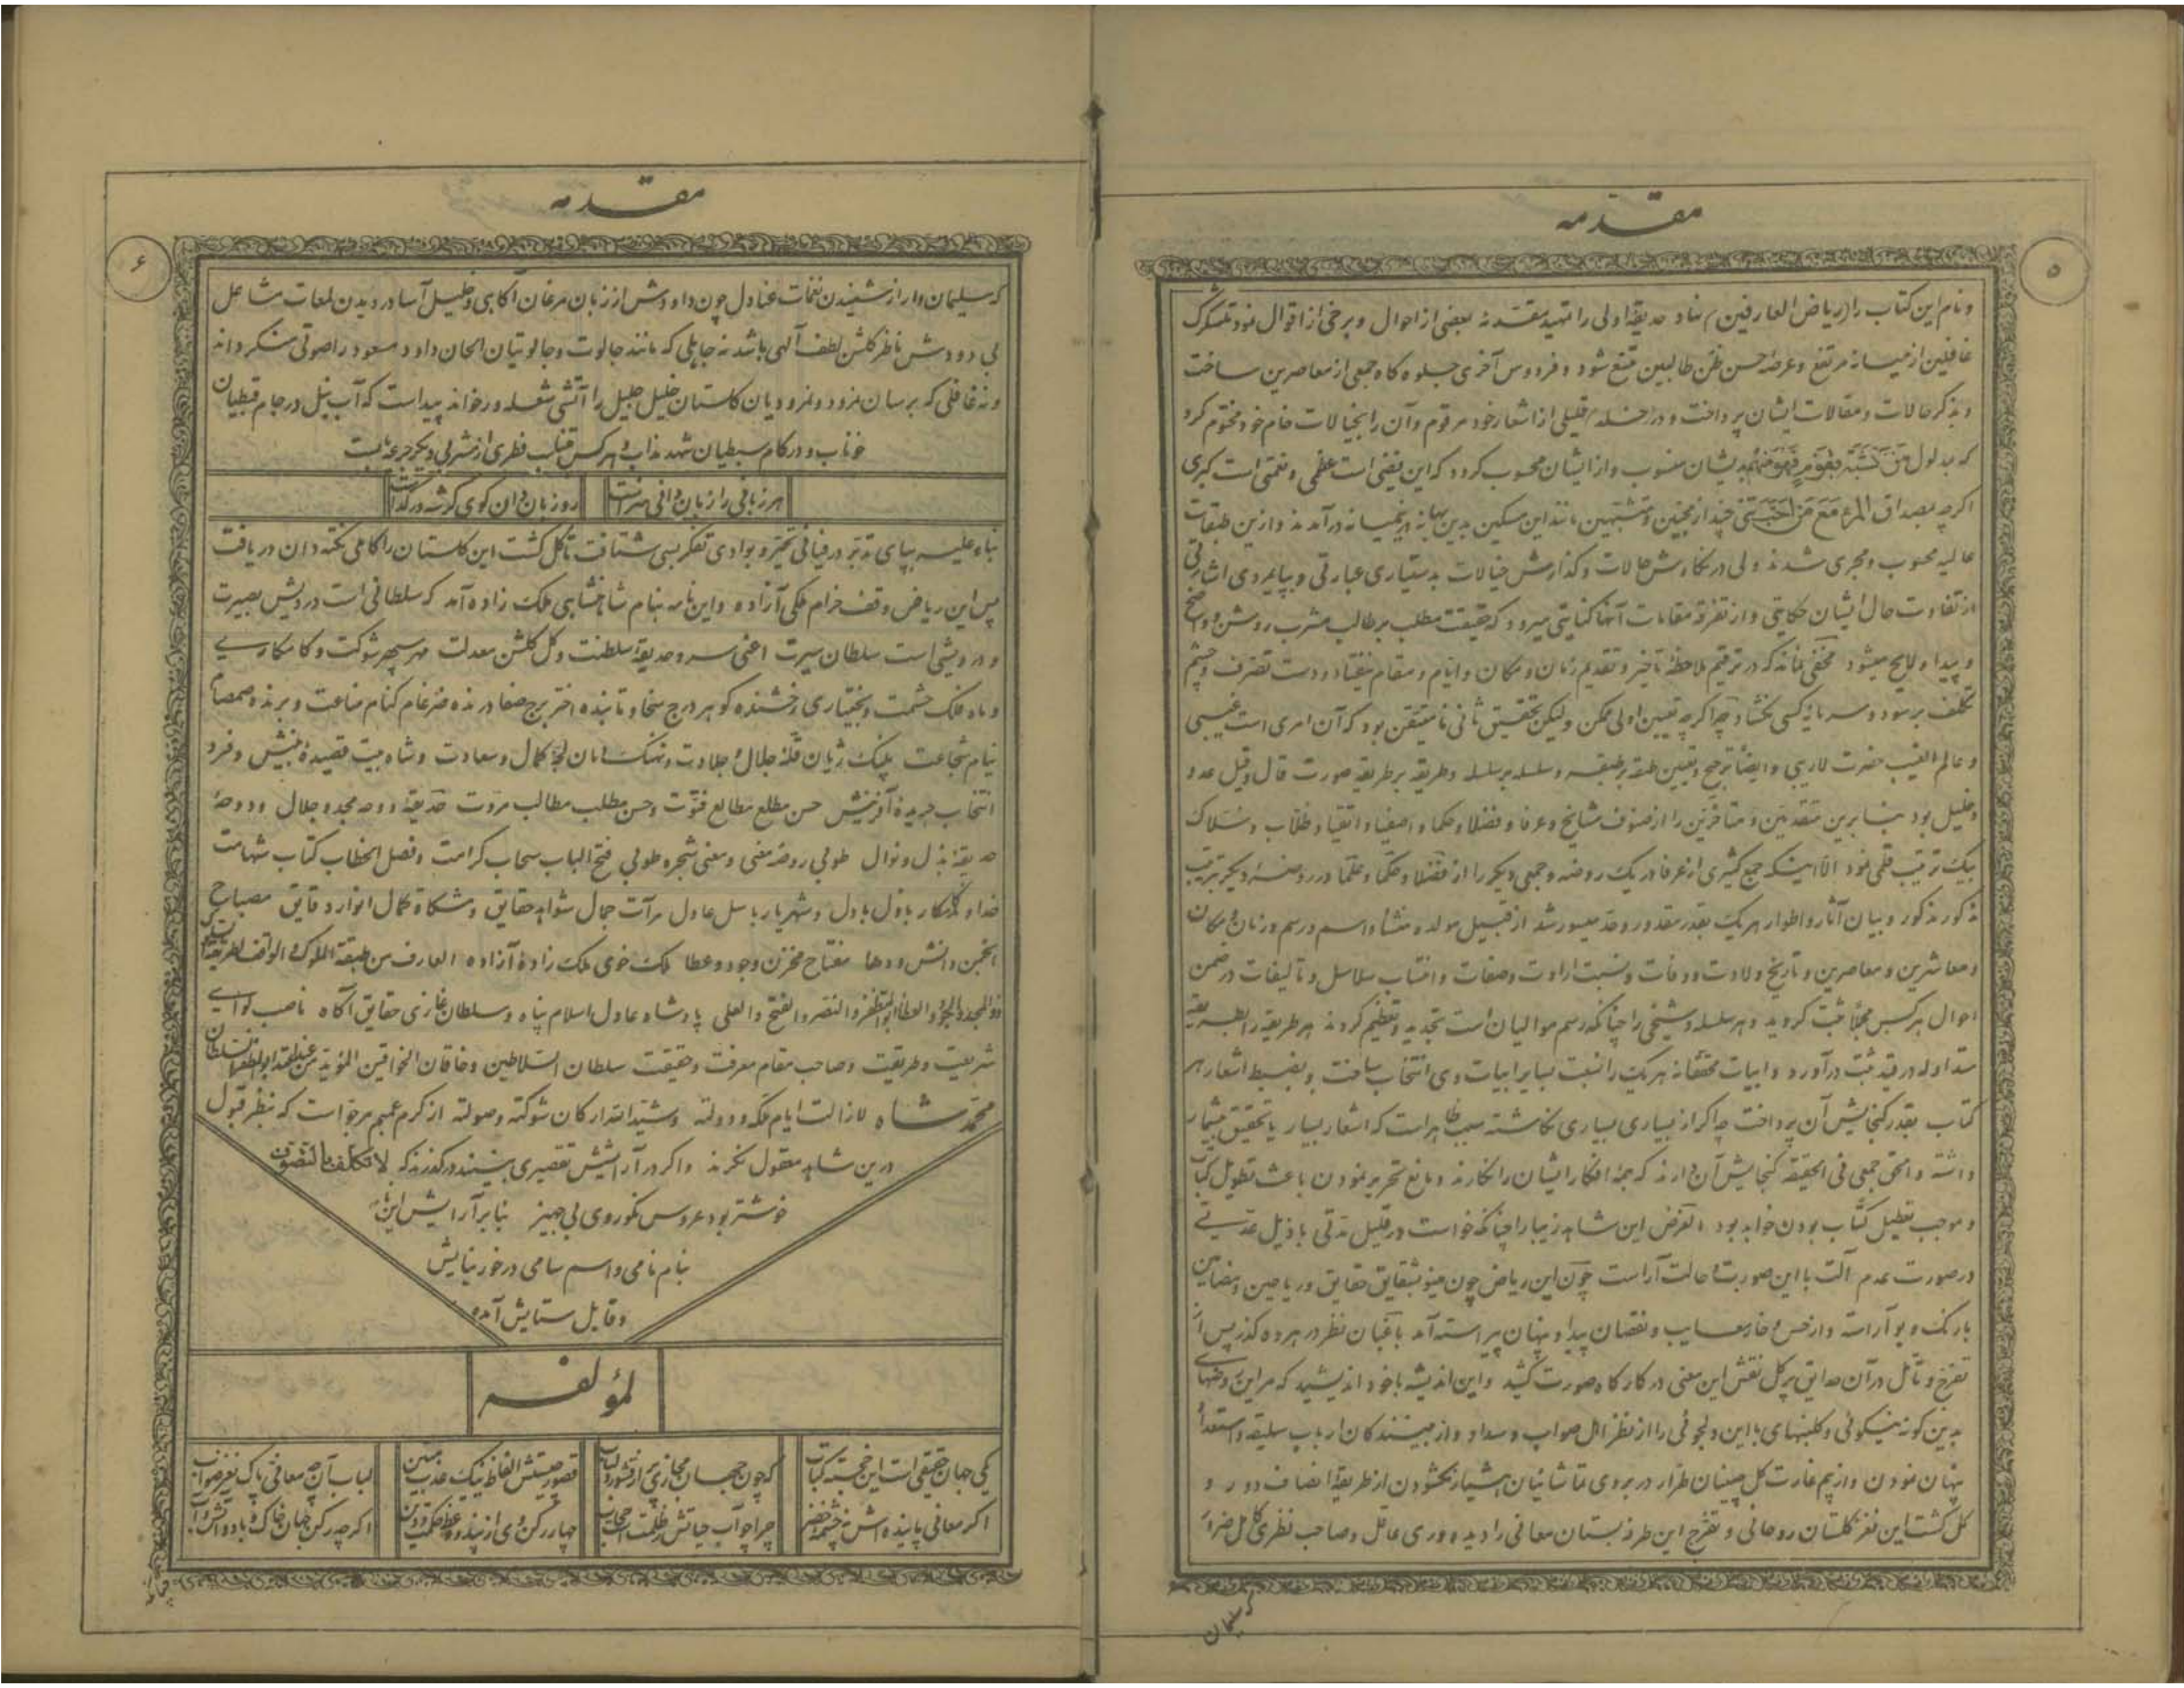 مقدمه
۵
و نام این کتاب را (ریاض العارفین) نهاد حدیقهٔ اولی را تمهید مقدمه بعضی از احوال و برخی از اقوال نمود تا
غافلین از میانه مرتفع و عرصهٔ حسن ظن طالبین متسع شود و فردوس آخری جلوه گاه جمعی از معاصرین ساخت
و بذکر حالات و مقالات ایشان پرداخت و در قلیلی از اشعار خود مرقوم و آن را بخیالات خام خود مختوم کرد
که بمدلول من تشبه بقوم فهو منهم بدیشان منسوب و از ایشان محسوب گردد که این فیضی است عظمی و نعمتی است کبری
اگرچه بمصداق المرء مع من احب تنی چند از محبین و متشبهین مانند این مسکین بدین بهانه در میانه درآمدند و ازین طبقات
عالیه محسوب و مجری شدند ولی در نگارش حالات و گذارش خیالات بدستیاری عبارتی و بپایمردی اشارتی
از تفاوت حال ایشان حکایتی و از تفرقهٔ مقامات آنها کنایتی میرود که حقیقت مطلب بر طالب مشرب روشن و واضح
و پیدا و لایح میشود مخفی نماند که در ترقیم ملاحظهٔ تأخیر و تقدیم زمان و مکان و ایام و مقام نیفتاد و دست تصرف و چشم
تکلف بر سود و سرمایهٔ کسی نگشاد چه اگرچه تعیین اولی ممکن ولیکن تحقیق ثانی نامتیقن بود که آن امری است غیبی
و عالم الغیب حضرت لاریبی و ایضاً ترجیح و تعیین طبقه بر طبقه و سلسله بر سلسله و طریقه بر طریقه صورت قال و قیل عدو
و خلیل بود بنابرین متقدمین و متأخرین را از صنوف مشایخ و عرفا و فضلا و حکما و اصفیا و اتقیا و طلاب و سلاک
بیک ترتیب قلمی نمود الا اینکه جمع کثیری از عرفا در یک روضه و جمعی دیگر را از فضلا و حکما و علما در روضهٔ دیگر بترتیب
مذکور مذکور و بیان آثار و اطوار هر یک بقدر مقدور و حد میسور شد از قبیل مولد و منشأ و اسم و رسم و زمان و مکان
و معاشرین و معاصرین و تاریخ ولادت و وفات و نسبت ارادت و صفات و انتساب سلاسل و تألیفات در ضمن
احوال هر کس مجملاً ثبت گردید و هر سلسله و شیخی را چنانکه رسم موالیان است تمجید و تعظیم کردند هر طریقه را بطریقهٔ
متداوله در قید ثبت درآورد و ابیات محققانه هر یک را نسبت بسایر ابیات وی انتخاب ساخت و بضبط اشعار هر
کتاب بقدر گنجایش آن پرداخت چه اگر از بسیاری بسیاری نگاشته سبب ظاهر است که اشعار بسیار یا تحقیق بیشمار
داشته و الحق جمعی فی الحقیقه گنجایش آن دارند که همهٔ افکار ایشان را نگارند و مانع تحریر نمودن باعث تطویل کتاب
و موجب تعطیل کتاب بودن خواهد بود الغرض این شاهد زیبا را چنانکه خواست در قلیل مدتی با ذیل عدتی
در صورت عدم آلت با این صورت و حالت آراست چون این ریاض چون مینو بشقایق حقایق و ریاحین مضامین
با رنگ و بو آراسته و از خس و خار معایب و نقصان پیدا و پنهان پیراسته آمد باغبان نظر در هر ره گذر پس از
تفرج و تأمل در آن حدایق پر گل نقش این معنی در کارگاه صورت کشید و این اندیشه با خود اندیشید که مر این روضهای
بدین گونه نیکوئی و گلبنهای با این دلجوئی را از نظر اهل صواب و سداد و از بینندگان ارباب سلیقه و استعداد
پنهان نمودن و از بیم غارت گل چینان طرار در بروی تماشائیان هشیار نگشودن از طریقهٔ انصاف دور و
گل گشت این نغز گلستان روحانی و تفرج این طرفه بستان معانی را دیده وری عاقل و صاحب نظری کامل
سلیمان
مقدمه
۶
که سلیمان وار از شنیدن نغمات عنادل چون داودش از زبان مرغان آگاهی و خلیل آسا در دیدن لمعات مشاعل
بی دودش ناظر گلشن لطف آلهی باشد نه جاهلی که مانند جالوت و جالوتیان الحان داود مسعود را صوتی منکر داند
و نه غافلی که برسان نمرود و نمرودیان گلستان خلیل جلیل را آتشی شعله ور خواند پیداست که آب نیل در جام قبطیان
خوناب و در کام سبطیان شهد مذاب و هر کس را مناسب فطری از مشربی دیگر جرعه ایست
هر زبانی را زبان دانی سزاست
رو زبان دان گوی
بناء علیه بپای تدبر در فیافی تحیر و بوادی تفکر بسی شتافت تا گل گشت این گلستان را کاملی نکته دان دریافت
پس این ریاض وقف خرام ملکی آزاده و این نامه بنام شاهنشاهی ملک زاده آمد که سلطانی است درویش بصیرت
و درویشی است سلطان سیرت اعنی سرو حدیقهٔ سلطنت و گل گلشن معدلت مهر سپهر شوکت و کامکاری
و ماه فلک حشمت و بختیاری رخشنده گوهر درج سخا و تابنده اختر برج صفا درنده ضرغام کنام مناعت و برنده صمصام
نیام شجاعت پلنگ ژیان قلهٔ جلال و جلادت و نهنگ دمان لجهٔ کمال و سعادت و شاه بیت قصیدهٔ بینش و فرد
انتخاب جریدهٔ آفرینش حسن مطلع مطالع فتوت و حسن مطلب مطالب مروت حدیقهٔ دوحهٔ مجد و جلال و دوحهٔ
حدیقهٔ بذل و نوال طوبی روضهٔ معنی و معنی شجرهٔ طوبی فتح الباب سحاب کرامت و فصل الخطاب کتاب شهامت
خداوندگار باذل بادل و شهریار باسل عادل مرآت جمال شواهد حقایق و مشکاة کمال انوار دقایق مصباح
انجمن دانش و دها مفتاح مخزن وجود و عطا ملک خوی ملک زادهٔ آزاده العارف من طبقة الملوک و الواقف لطریقة
ذوالمجد والجود والعطاء ابوالمظفر والنصر والفتح والعلی پادشاه عادل اسلام پناه و سلطان غازی حقایق آگاه ناصب لوای
شریعت و طریقت و صاحب مقام معرفت و حقیقت سلطان السلاطین و خاقان الخواقین المؤید من عندالله السلطان
محمد شاه لازالت ایام ملکه و دولته و شید الله ارکان شوکته و صولته از کرم عمیم مرجو است که بنظر قبول
درین شاهد معقول نگرند و اگر در آرایشش تقصیری بینند درگذرند که لا تکلف بالتصوف
خوشتر بود عروس نکوروی بی جهیز بنابر آرایش این
بنام نامی و اسم سامی درخور نیایش
و قابل ستایش آمده
لمؤلفه
یکی جهان حقیقی است این خجسته کتاب
که چون جهان مجازی پر از قشور و لباب
قصور چیستش الفاظ نیک عذب متین
لباب آن چه معانی پاک نغز صواب
اگر معانی پاینده اش نه چشمهٔ خضر
چرا چو آب حیاتش ز ظلمت است حجاب
چهار رکن وی از پند و وعظ و حکمت و دین
اگرچه رکن جهان خاک و باد و آتش و آب